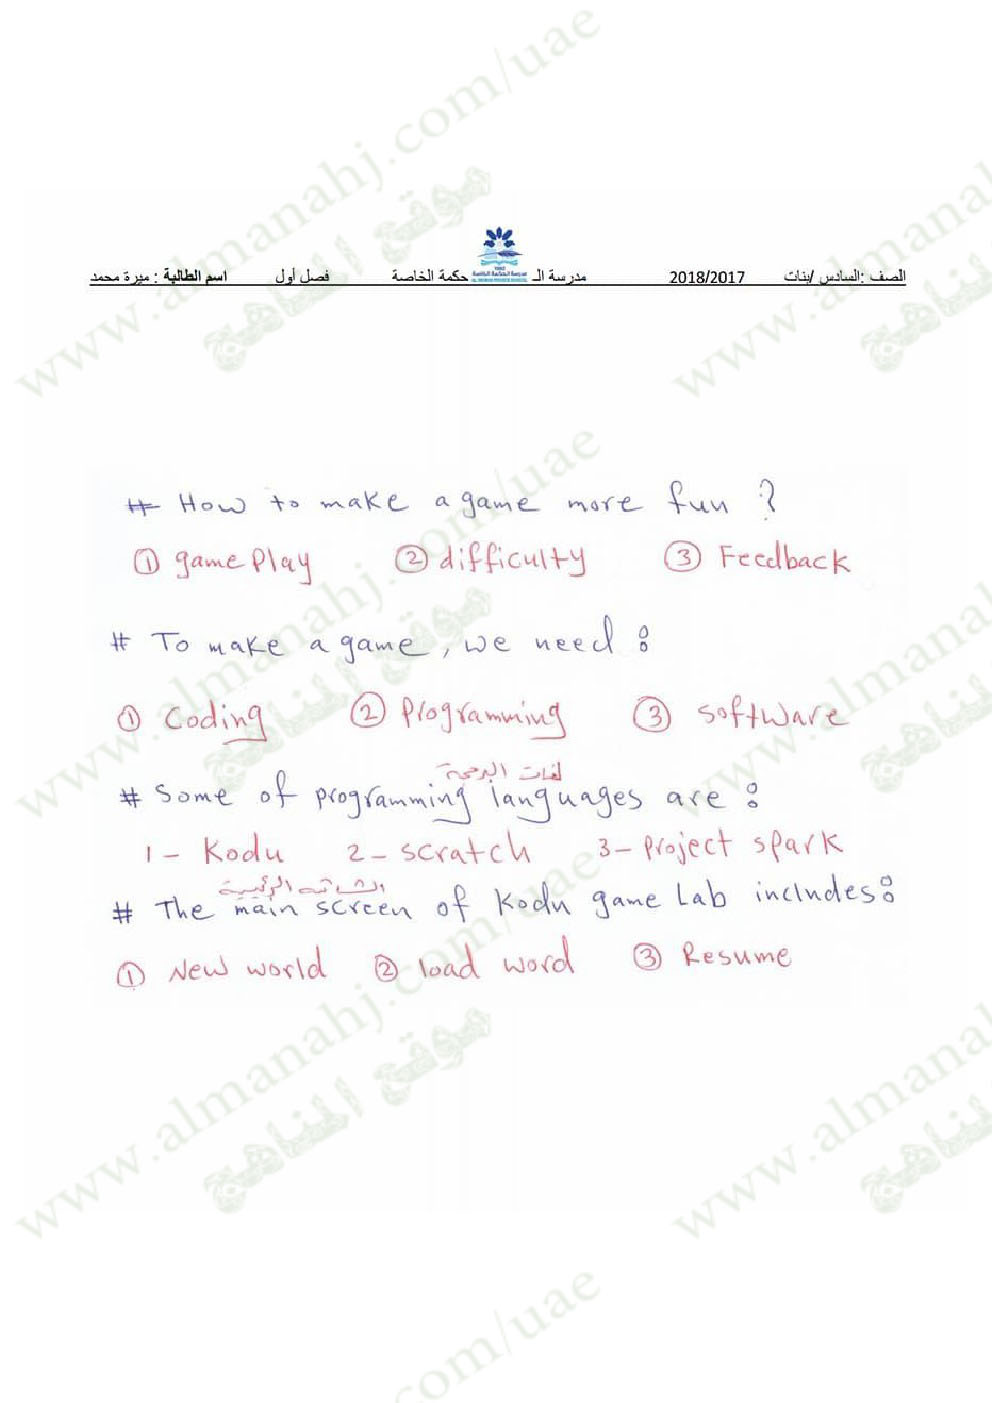 الصف :السادس /بنات 2018/2017 مدرسة الـ حكمة الخاصة فصل أول اسم الطالبة : ميرة محمد
# How to make a game more fun ?
① game Play ② difficulty ③ Feedback
# To make a game, we need :
① Coding ② Programming ③ software
لغات البرمجة
# Some of programming languages are :
1 - Kodu 2 - scratch 3 - Project spark
الشاشة الرئيسية
# The main screen of Kodu game Lab includes :
① New world ② load word ③ Resume
www.almanahj.com/uae
موقع المناهج